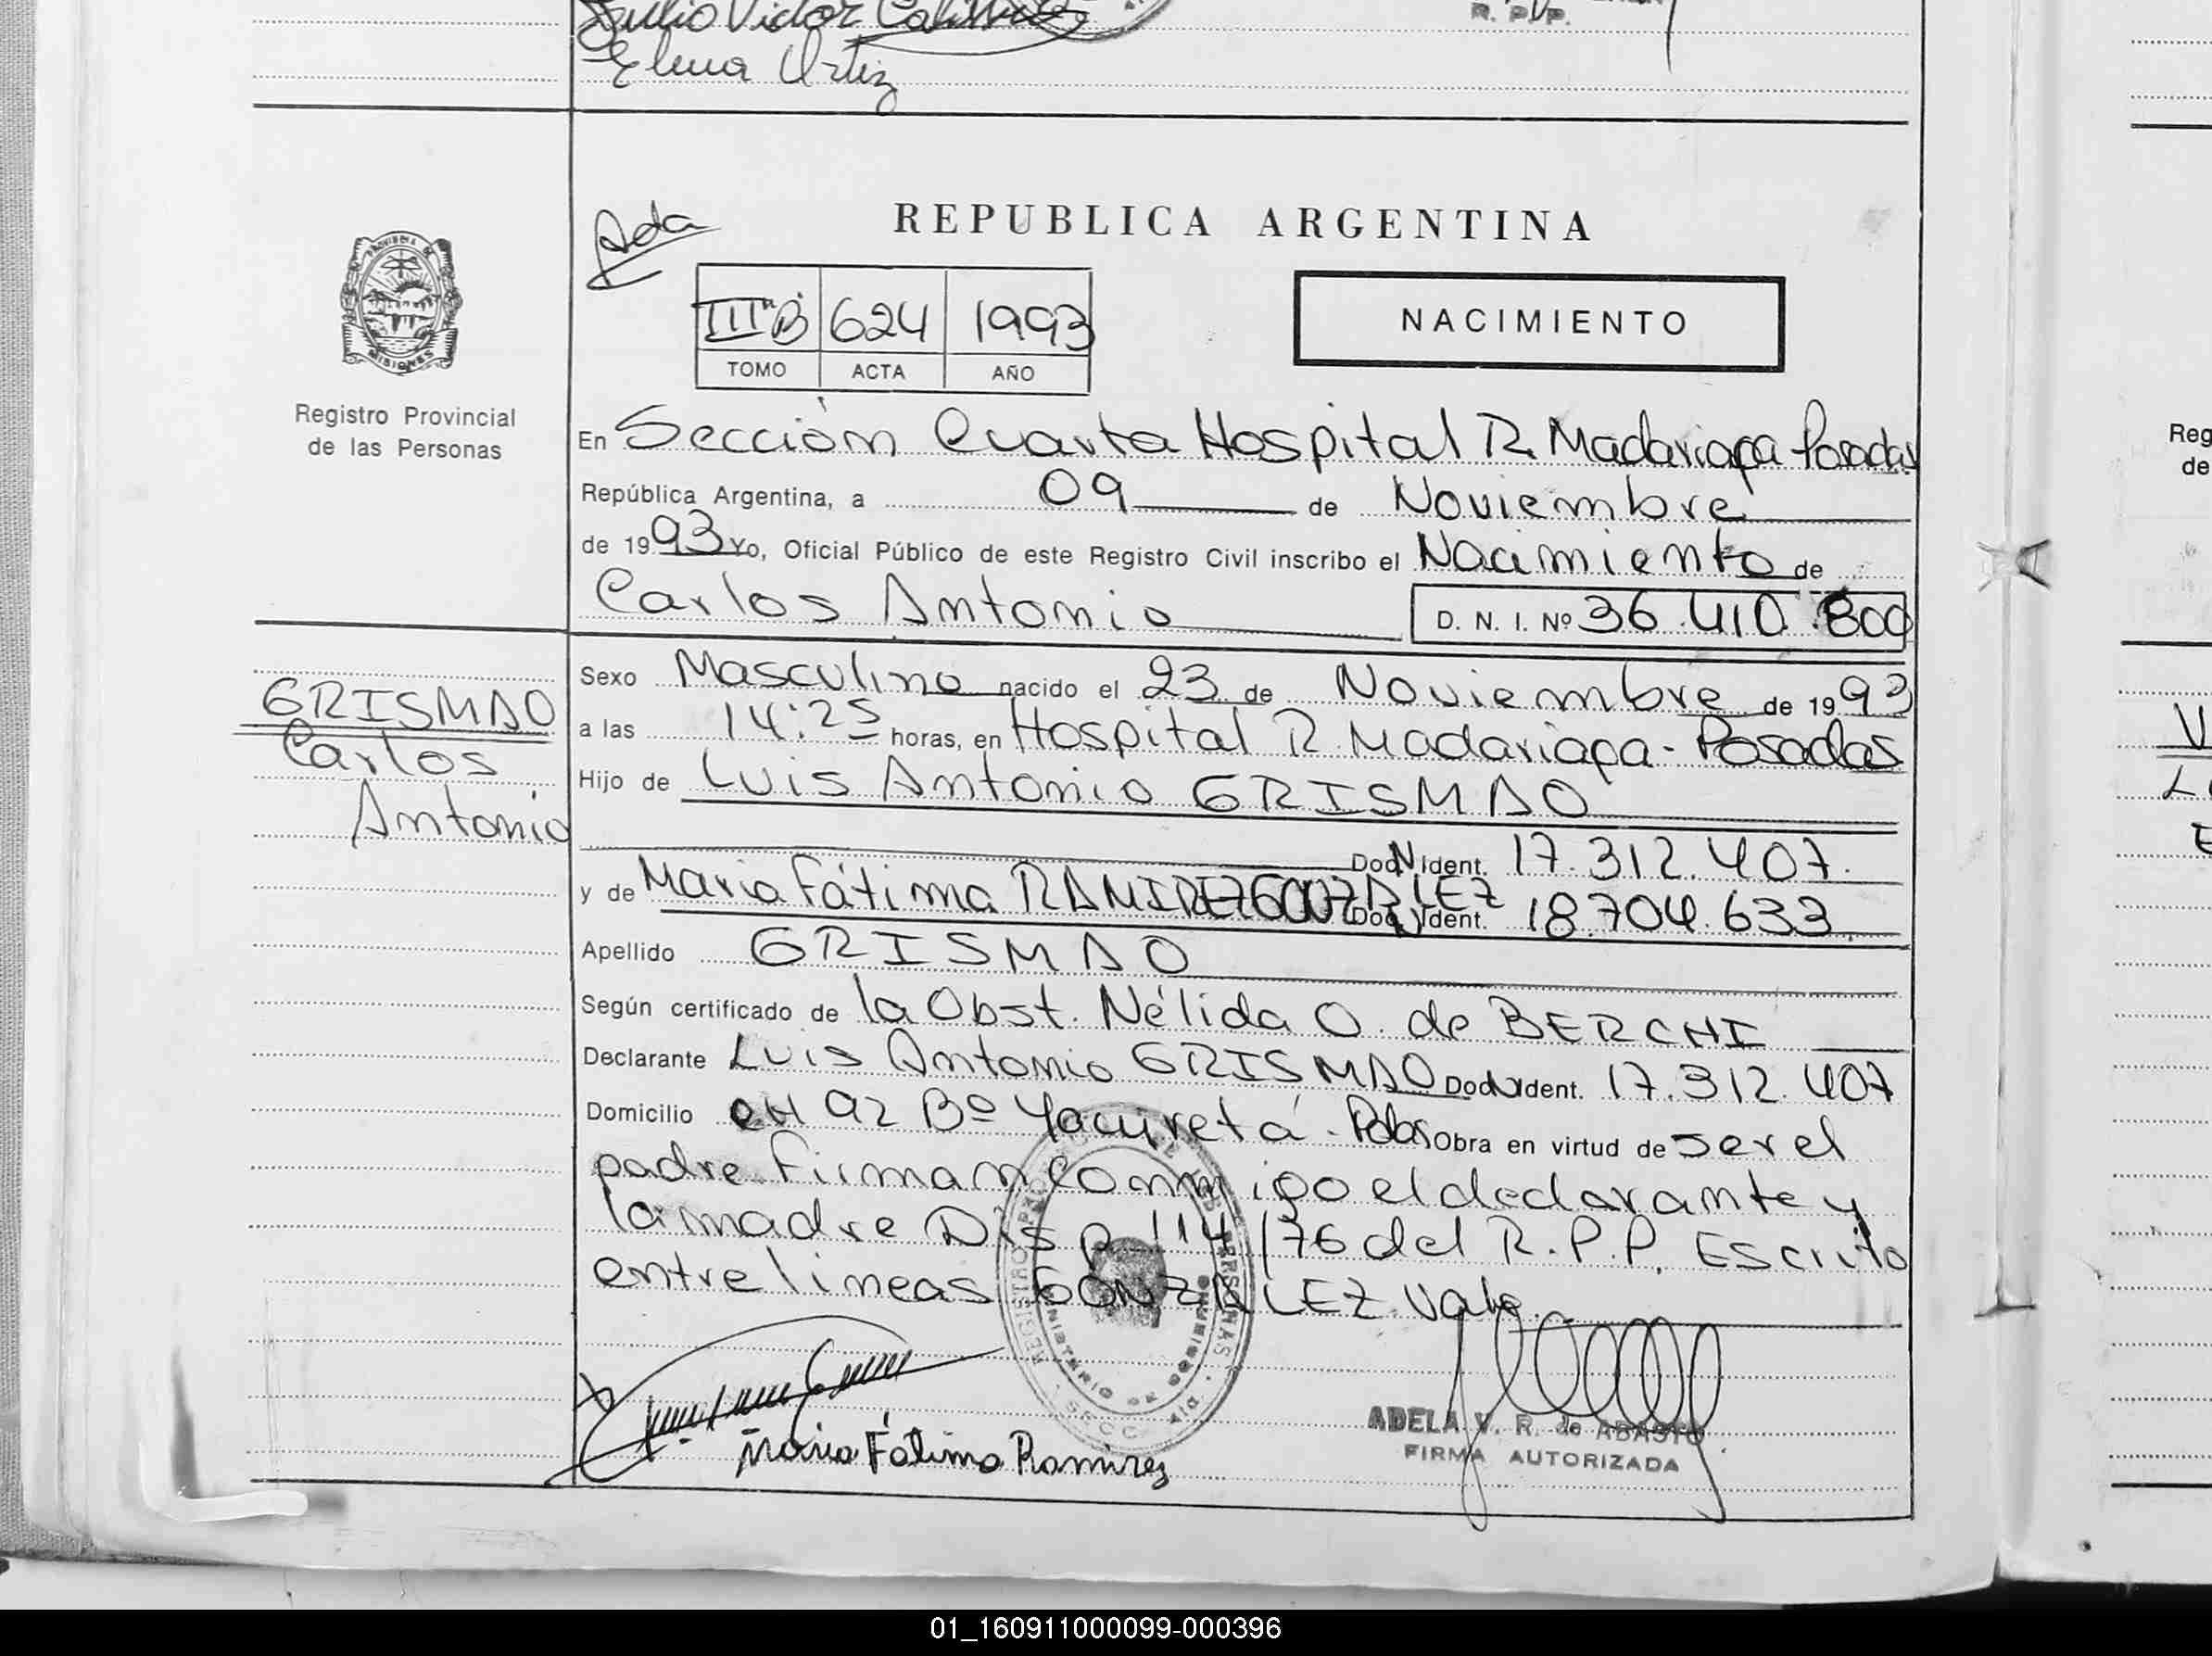 Julio Victor
Elena Ortiz
R. P. P.
Ada
REPUBLICA ARGENTINA
III"B" 624 1993
TOMO ACTA AÑO
NACIMIENTO
PROVINCIA DE MISIONES
Registro Provincial
de las Personas
En Sección Cuarta Hospital R. Madariaga Posadas
República Argentina, a 09 de Noviembre
de 1993 Yo, Oficial Público de este Registro Civil inscribo el Nacimiento de
Carlos Antonio D. N. I. Nº 36.410.800
Sexo Masculino nacido el 23 de Noviembre de 1993
a las 14:25 horas, en Hospital R. Madariaga - Posadas
Hijo de Luis Antonio GRISMAO
Doc N Ident. 17.312.407.
y de Maria Fátima RAMIREZ GONZALEZ Doc N Ident. 18.704.633.
Apellido GRISMAO
Según certificado de la Obst. Nélida O. de BERCHI
Declarante Luis Antonio GRISMAO Doc N Ident. 17.312.407
Domicilio CH 92 Bº Yacyretá - Pdas Obra en virtud de ser el
padre. Firman conmigo el declarante y
la madre Disp. 114/76 del R.P.P. Escrito
entre lineas GONZALEZ. Vale.
GRISMAO
Carlos
Antonio
REGISTRO PROVINCIAL DE LAS PERSONAS
MINISTERIO DE GOBIERNO
SECC. 4ta
Maria Fátima Ramirez
ADELA V. R. de ABASTO
FIRMA AUTORIZADA
Reg
de
01_160911000099-000396